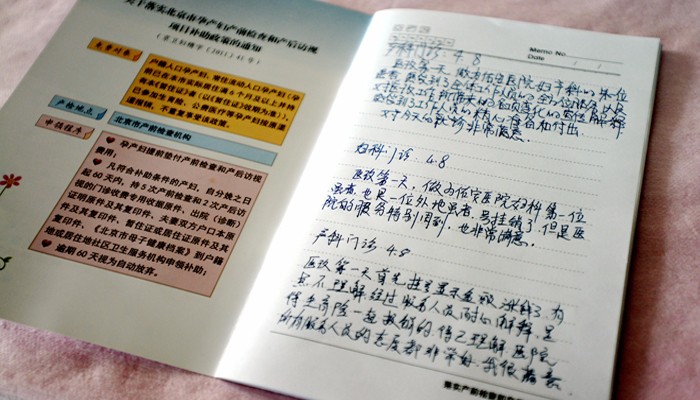 关于落实北京市孕产妇产前检查和产后访视
项目补助政策的通知
(京卫妇精字〔2011〕41号)
免费对象
户籍人口孕产妇、常住流动人口孕产妇(孕
前已在本市实际居住满6个月及以上并持
《居住证》或《暂住证》效期为准)。
已参加生育险、公费医疗等孕产妇按原渠
道报销,不重复享受该政策。
产检地点
北京市产前检查机构
申领程序
孕产妇提前垫付产前检查和产后访视
费用;
凡符合补助条件的产妇,自分娩之日
起60天内,持5次产前检查和2次产后访
视的门诊收费专用收据原件、出院(诊断)
证明原件及其复印件、夫妻双方户口本原
件及其复印件、暂住证或居住证原件及其
复印件、《北京市母子健康档案》到户籍
地或居住地社区卫生服务机构申领补助;
逾期60天视为自动放弃。
Memo No.
Date / /
产科门诊 4.8
医改第一天,做为佑安医院妇产科的第一位
对今天的就诊非常满意.
妇科门诊 4.8
医改第一天,做为佑安医院妇科第一位
患者,也是一位外地患者,号挂错了,但是医
院的服务特别周到,也非常满意.
产科门诊 4.8
医改第一天首先进来显示金额涨料了,有
点不理解,经过服务人员耐心解释,是
得生育险一起报销的,得已理解.医院
所有服务人员的态度都非常好,我很满意.